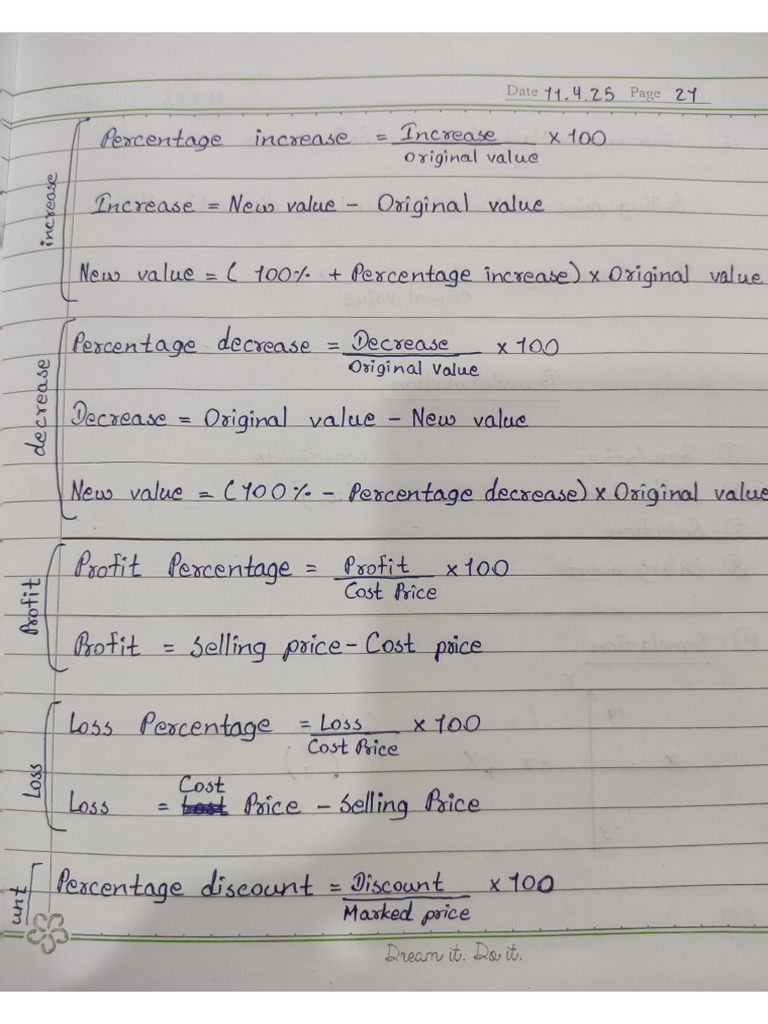 Date 11.4.25 Page 21
increase
Percentage increase = Increase / Original value × 100
Increase = New value - Original value
New value = ( 100% + Percentage increase) × Original value
decrease
Percentage decrease = Decrease / Original value × 100
Decrease = Original value - New value
New value = (100% - Percentage decrease) × Original value
Profit
Profit Percentage = Profit / Cost Price × 100
Profit = Selling price - Cost price
Loss
Loss Percentage = Loss / Cost Price × 100
Loss = Cost Price - Selling Price
unt
Percentage discount = Discount / Marked price × 100
Dream it. Do it.